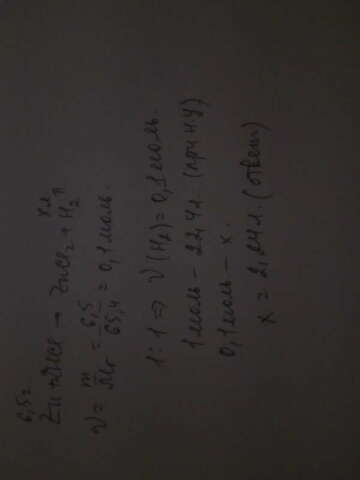 6,5г          х л
Zn + 2HCl → ZnCl2 + H2↑
ν = m/Mr = 6,5/65,4 = 0,1 моль.
1:1 ⇒ ν(H2) = 0,1 моль.
1 моль – 22,4 л. (при н.у)
0,1 моль – х.
х = 2,24 л. (ответ)